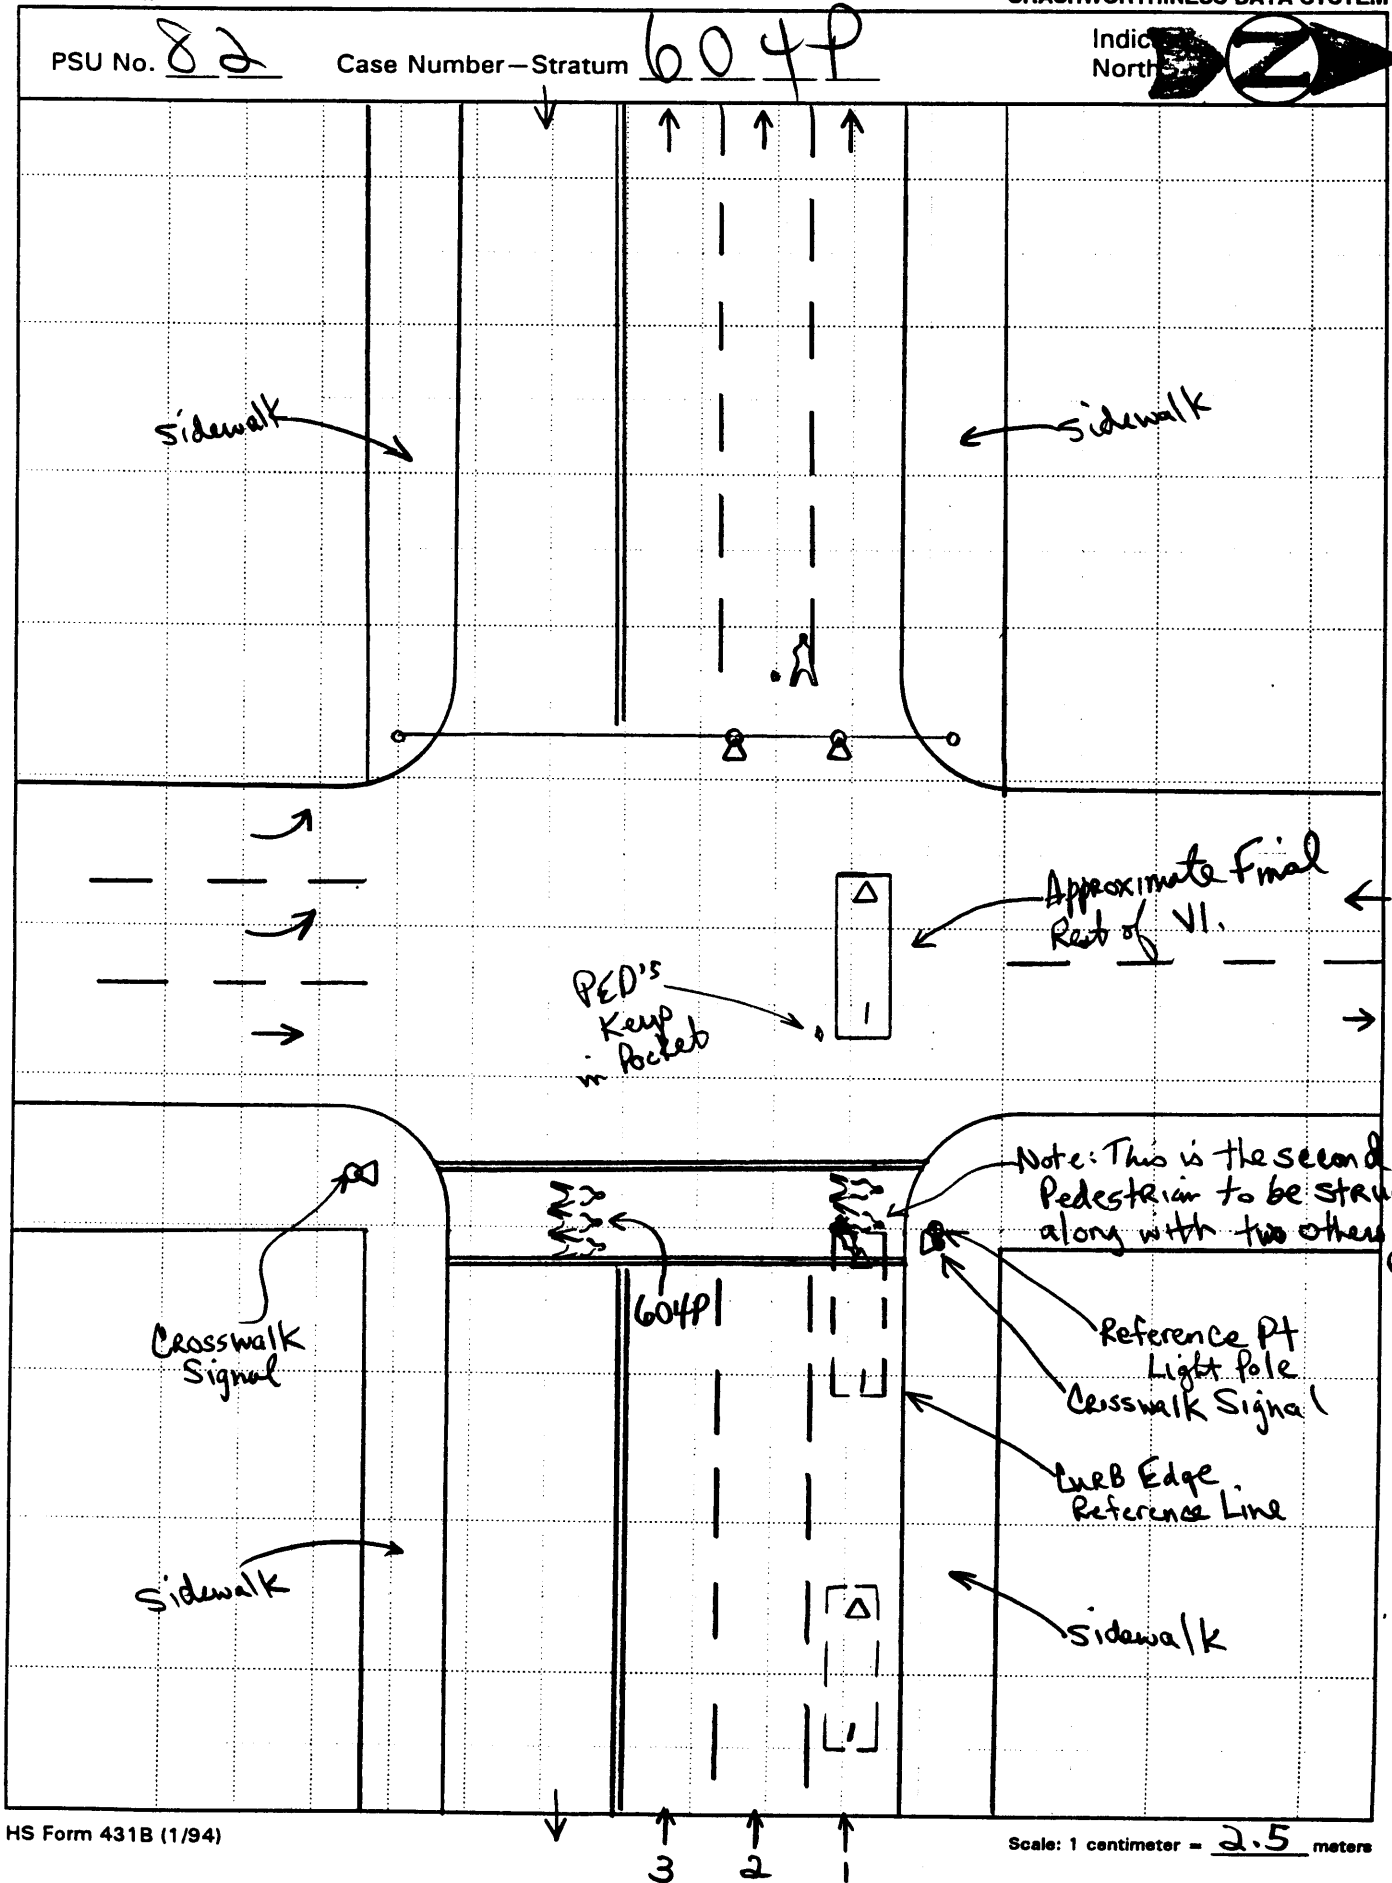 CRASHWORTHINESS DATA SYSTEM
PSU No. 82 Case Number—Stratum 604P
Indic
North
N
sidewalk
sidewalk
Approximate Final
Rest of V1.
PED's
Keys
in Pocket
Note: This is the second
Pedestrian to be stru
along with two others
604P
Crosswalk
Signal
Reference Pt
Light Pole
Crosswalk Signal
Curb Edge
Reference Line
Sidewalk
sidewalk
HS Form 431B (1/94)
Scale: 1 centimeter = 2.5 meters
3 2 1